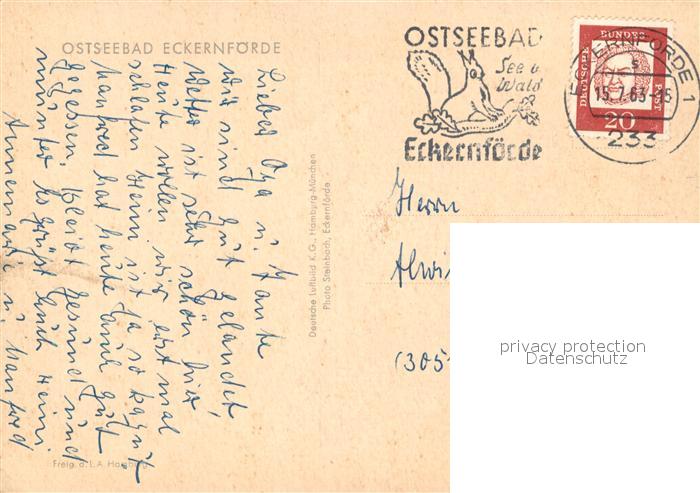 OSTSEEBAD ECKERNFÖRDE
Lieber Opa u. Tante
wir sind gut gelandet,
Wetter ist sehr schön hier
Heute wollen wir erst mal
schlafen Heini ist ja so kaputt
Manfred hat heute auch gut
gegessen, bleibt gesund und
munter es grüßt Euch Heini
Annemarie u. Manfred
Freig. d. L.A. Hamburg
Deutsche Luftbild K.G., Hamburg-München
Photo Steinbach, Eckernförde
OSTSEEBAD
See u
Wald
Eckernförde
DEUTSCHE BUNDESPOST
20
ECKERNFÖRDE 1
s
15.7.63-15
233
Herrn
Alwi
(305
privacy protection
Datenschutz